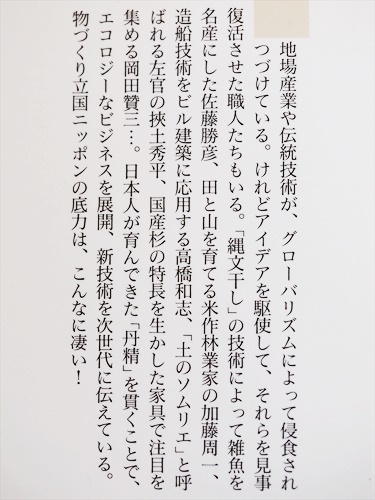 地場産業や伝統技術が、グローバリズムによって侵食され
つづけている。けれどアイデアを駆使して、それらを見事
復活させた職人たちもいる。「縄文干し」の技術によって雑魚を
名産にした佐藤勝彦、田と山を育てる米作林業家の加藤周一、
造船技術をビル建築に応用する高橋和志、「土のソムリエ」と呼
ばれる左官の挾土秀平、国産杉の特長を生かした家具で注目を
集める岡田贊三…。日本人が育んできた「丹精」を貫くことで、
エコロジーなビジネスを展開、新技術を次世代に伝えている。
物づくり立国ニッポンの底力は、こんなに凄い！